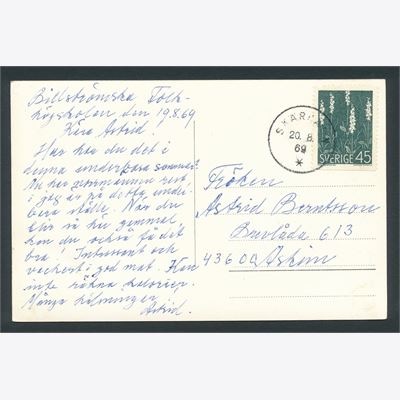 Billströmska Folk-
högskolan den 19.8.69
Kära Astrid.
Hur har du det i
denna underbara sommar?
Nu har mormannen rest
i jag är på detta underbara
ställe. När du
blir så här gammal
kan du också få det
bra! Intressant och
vackert i god mat. Kan
inte räkna kalorier.
Många hälsningar
Astrid.
SKÄR
20. 8.
69
SVERIGE 45
Fröken
Astrid Berntsson
Brevlåda 613
43600 Askim